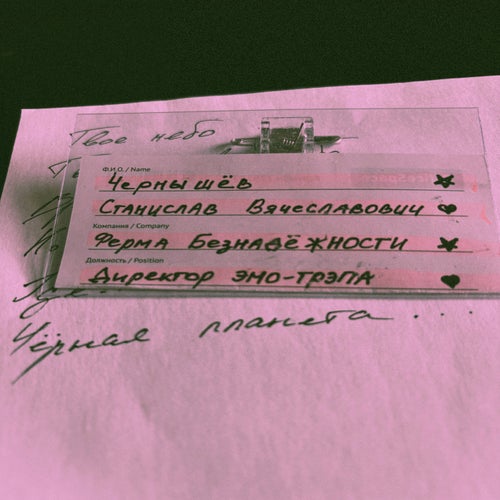 Твоё небо
Ф.И.О. / Name
Чернышёв
Станислав Вячеславович
Компания / Company
Ферма Безнадёжности
Должность / Position
Директор эмо-трэпа
Чёрная планета ...